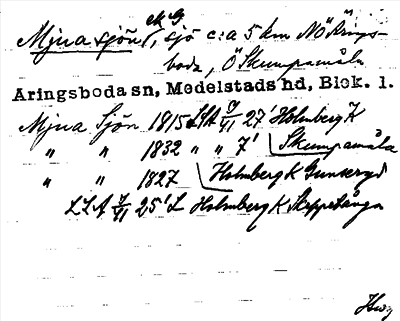 MG
Mjua sjön, sjö c:a 5 km NÖ Årings-
boda, Ö Skumpamåla
Aringsboda sn, Medelstads hd, Blek. 1.
Mjua Sjön 1815 LSA 27' Holmberg K
" " 1832 " " 7' Skumpamåla
" " 1827 Holmberg K Gunseryd
LSA 25' L Holmberg K
Hwg